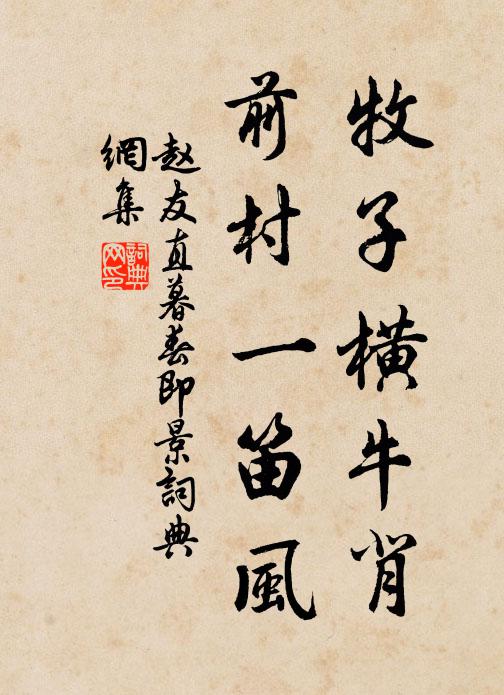 牧子橫牛背
前村一笛風
赵友直暮春即景詞典
網集
詞典
网印